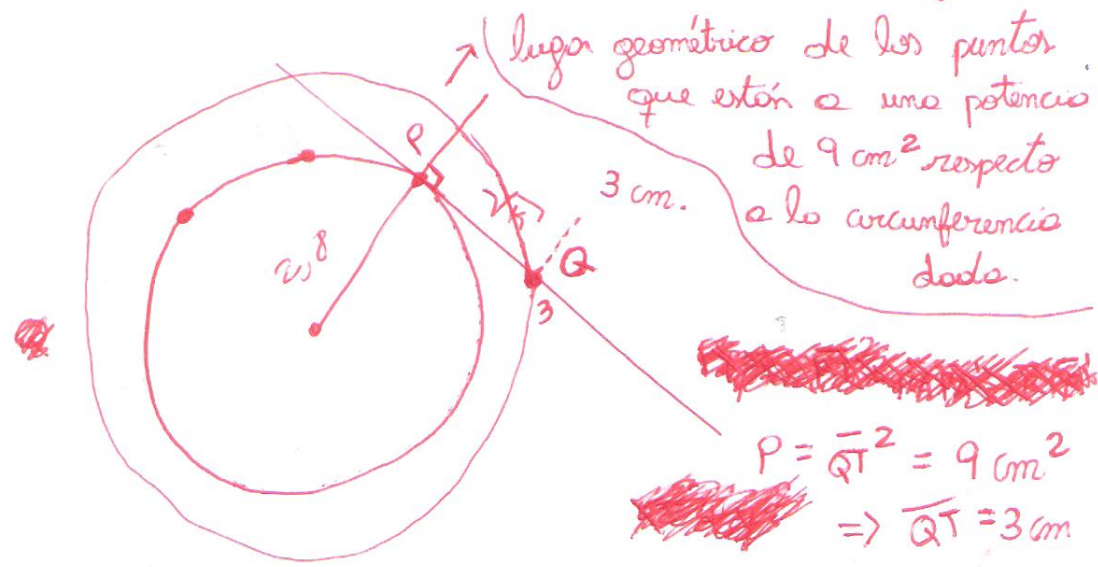 lugar geométrico de los puntos
que están a una potencia
de 9 cm² respecto
a la circunferencia
dada.
P
3 cm.
Q
3
P = QT² = 9 cm²
=> QT = 3 cm